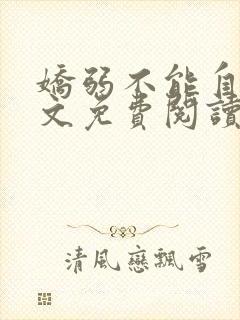 嬌弱不能自
文免費閱讀
清風戀飄雪